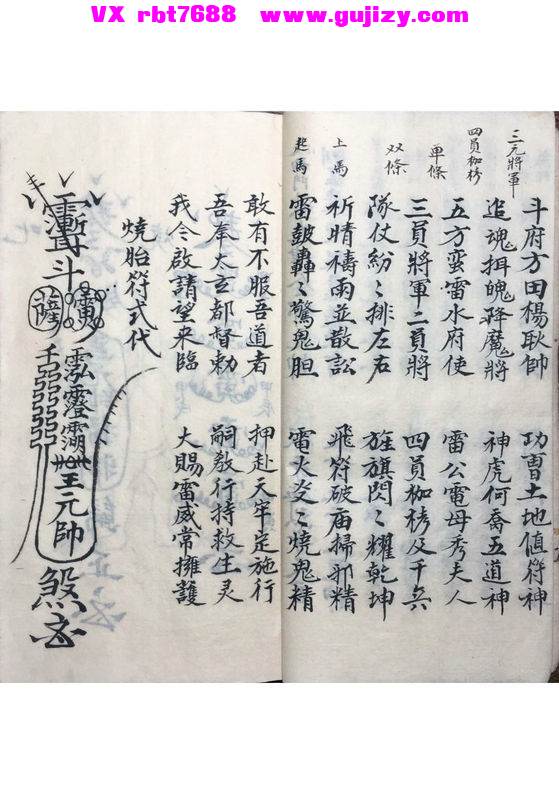 VX rbt7688 www.gujizy.com
三元將軍
四員枷栲
单條
双條
上馬
起馬
斗府方田楊耿帥 功曹土地值符神
追魂揖魄降魔將 神虎何喬五道神
五方蛮雷水府使 雷公電母秀夫人
三員將軍二員將 四員枷栲及千兵
隊仗紛々排左右 旌旗閃々耀乾坤
祈晴禱雨並散訟 飛符破庙掃邪精
雷鼓轟々驚鬼胆 電火炎々燒鬼精
敢有不服吾道者 押赴天牢定施行
吾奉太玄都督勅 嗣教行持救生灵
我今啟請望来臨 大賜雷威常擁護
燒胎符式代
斗
王元帥
煞